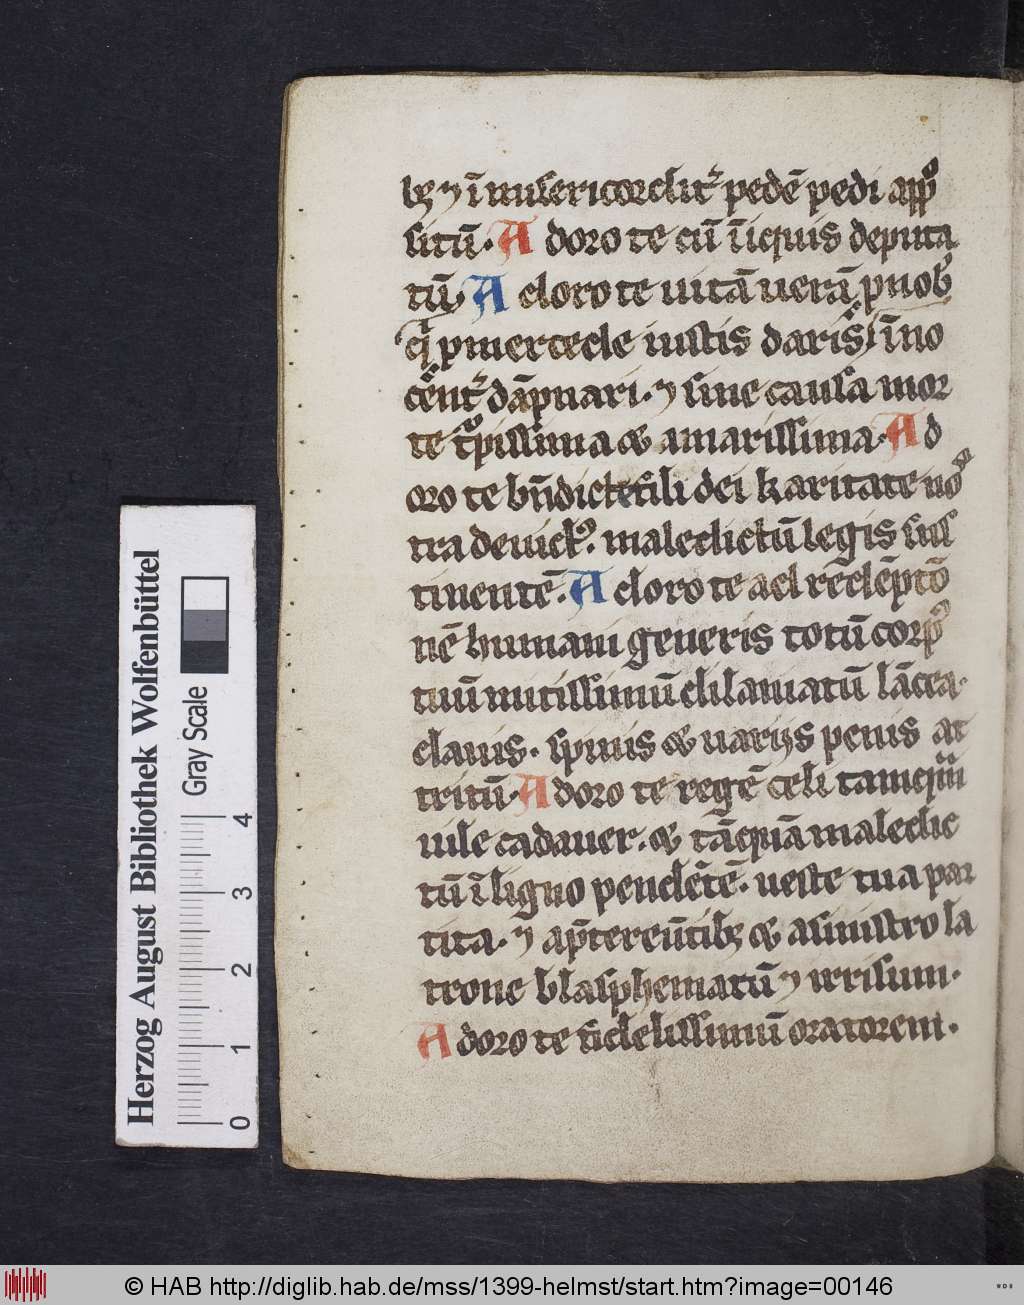 bꝫ ⁊ ĩmisericordit͛ pedẽ pedi appͦ
situ᷈. A doro te cũ ĩiquis deputa
tũ A doro te uitã uerã, p nob᷒
q̃ p mercede iustis daris, ĩno
cẽnt͛ dãpnari. ⁊ sine causa mor
te tͥpissima & amarissima. A d
oro te bñdicte fili dei karitate nͦ
tra deuict᷒. maledictũ legis sus
tinentẽ. A doro te ad rẽdẽptõ
nẽ humani generis totũ corp᷒
tuũ mitissimũ dilaniatũ lãcea.
clauis. spinis & uarijs penis at
tritũ. A doro te regẽ celi tamqm̃
uile cadauer. & tãquã maledic
tũ ĩ ligno pendẽtẽ. ueste tua par
tita. ⁊ a p̃tereũtibꝫ & a sinistro la
trone blasphematũ ⁊ irrisum.
A doro te fidelissimũ oratorem.
Herzog August Bibliothek Wolfenbüttel
Gray Scale
0 1 2 3 4
© HAB http://diglib.hab.de/mss/1399-helmst/start.htm?image=00146